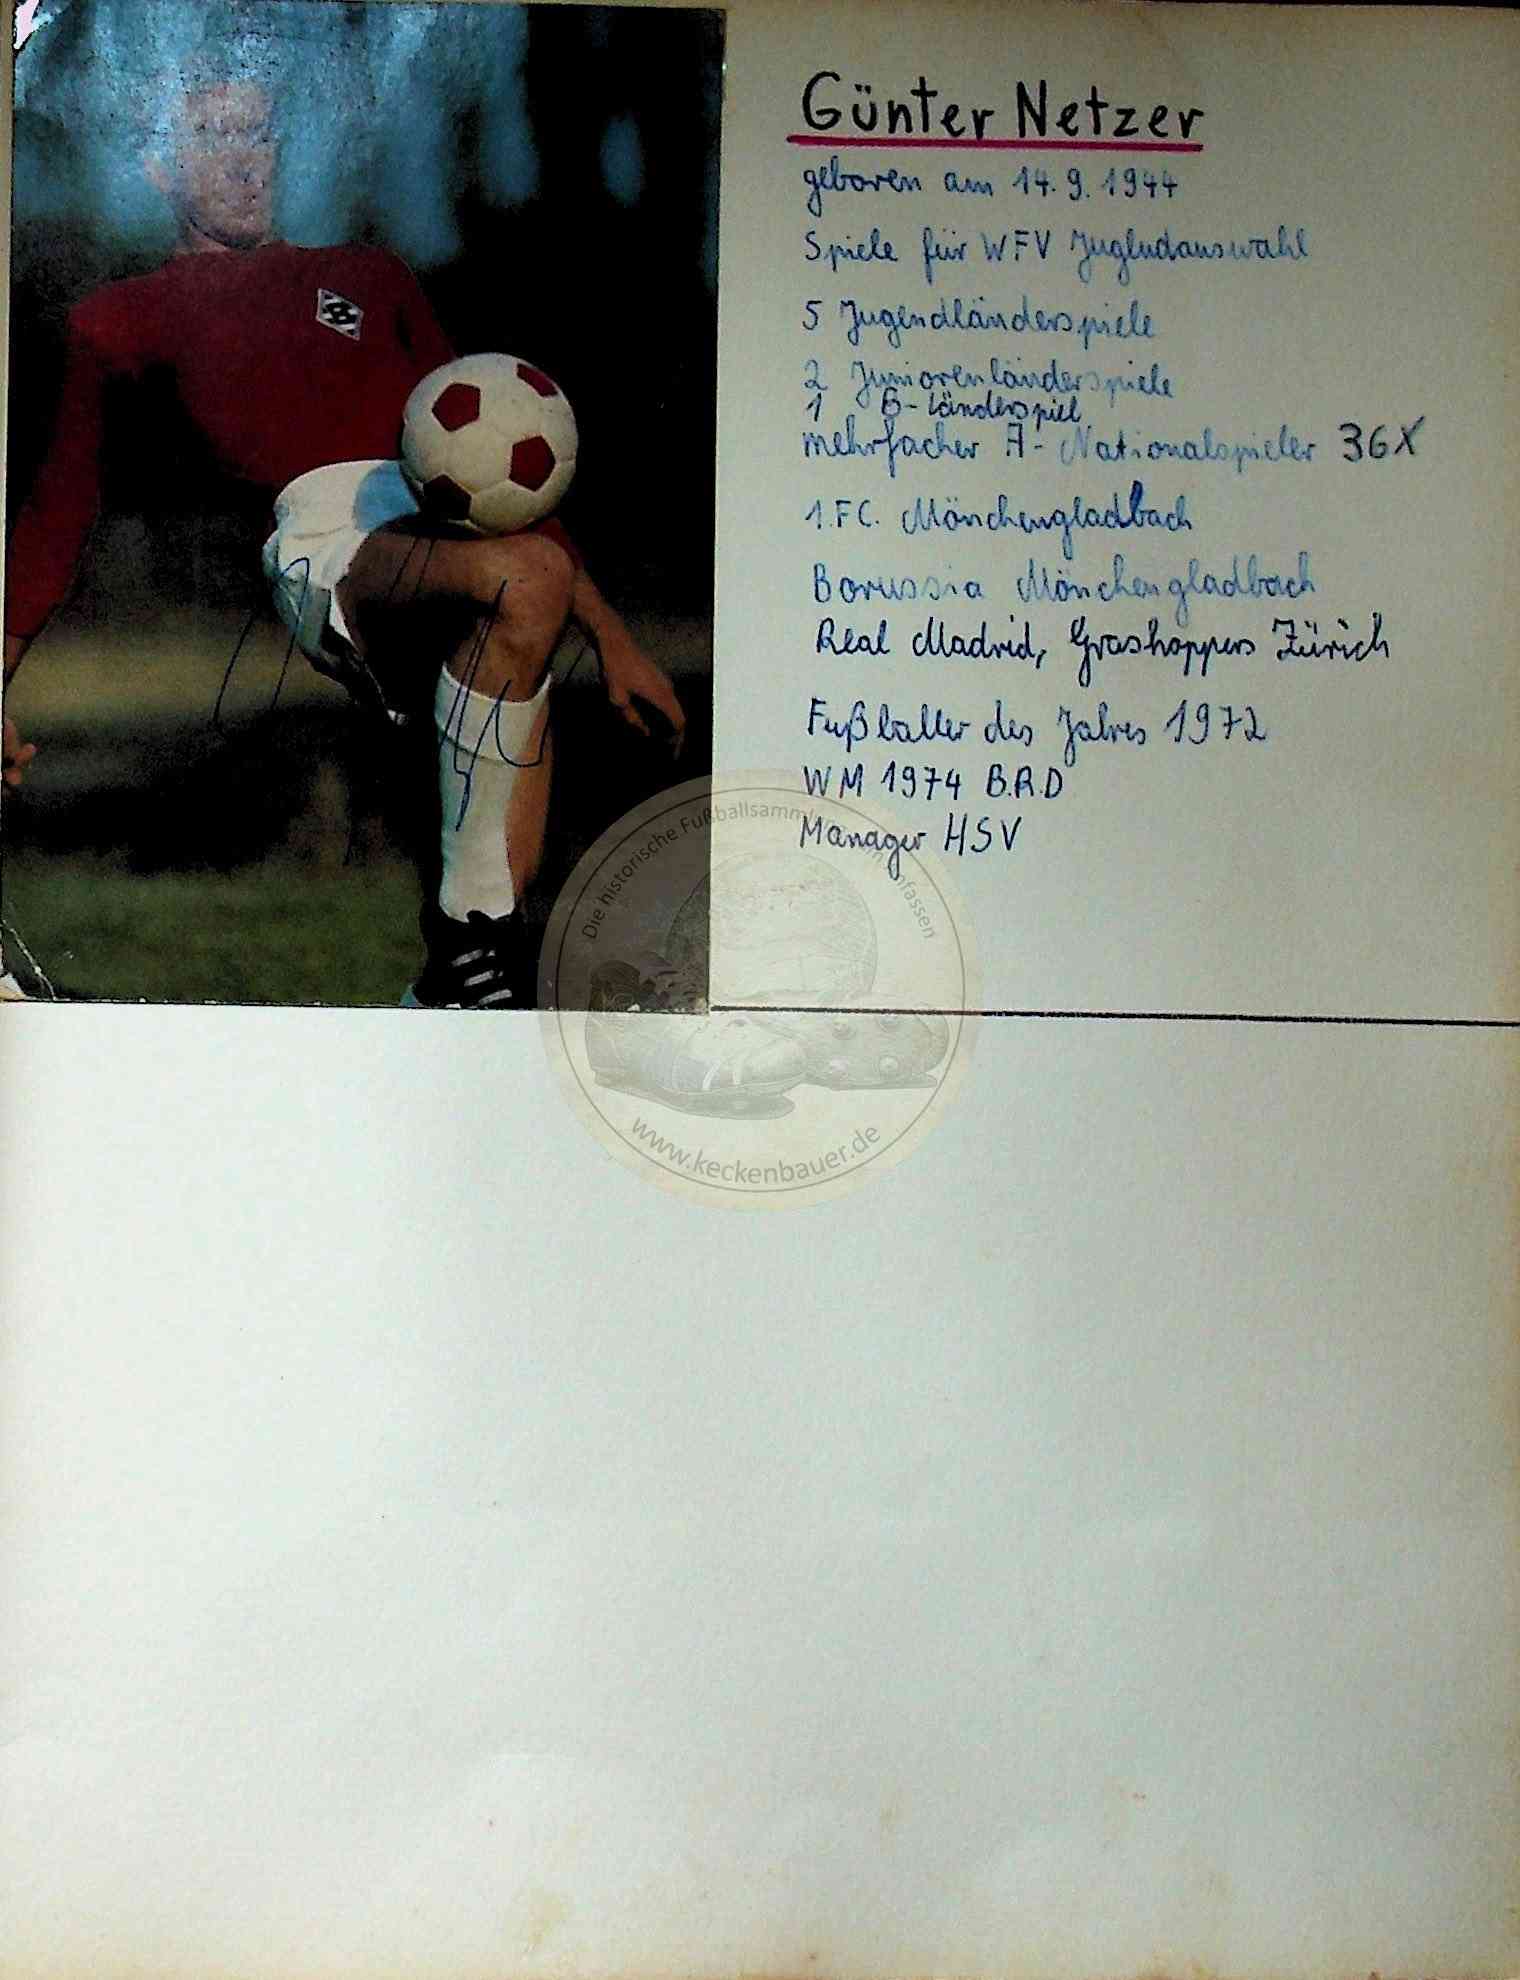 Günter Netzer
geboren am 14.9.1944
Spiele für WFV Jugendauswahl
5 Jugendländerspiele
2 Juniorenländerspiele
1 B-Länderspiel
mehrfacher A-Nationalspieler 36X
1.FC. Mönchengladbach
Borussia Mönchengladbach
Real Madrid, Grashoppers Zürich
Fußballer des Jahres 1972
WM 1974 B.R.D
Manager HSV
Die historische Fußballsammlung zum Anfassen
www.keckenbauer.de